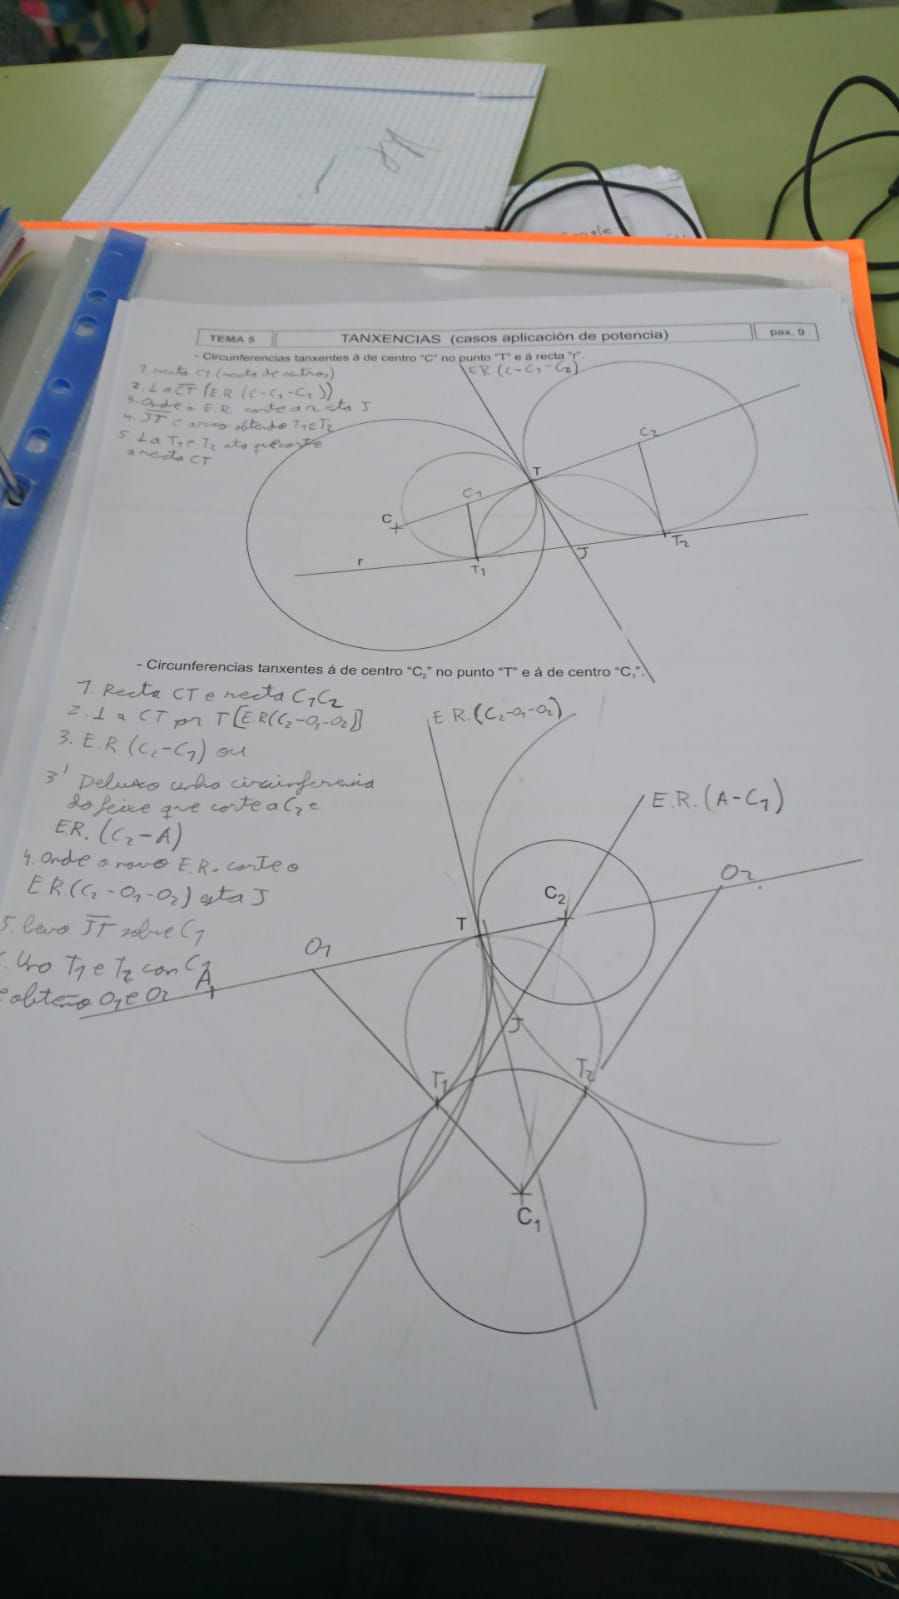 TEMA 5
TANXENCIAS (casos aplicación de potencia)
pax. 9
- Circunferencias tanxentes á de centro "C" no punto "T" e á recta "r".
1. recta CT (recta de centros)
2. ⊥ a CT (E.R (C-C1-C2))
3. Onde o E.R. corte a r esta J
4. JT e arco obteño T1 e T2
5. ⊥ a T1 e T2 ata que corte
a recta CT
E.R (C-C1-C2)
C2
T
C1
C
r
T1
J
T2
- Circunferencias tanxentes á de centro "C2" no punto "T" e á de centro "C1".
1. Recta CT e recta C1C2
2. ⊥ a CT por T [E.R(C2-O1-O2)]
3. E.R (C2-C1) ou
3' Debuxo unha circunferencia
do feixe que corte a C2 e
E.R. (C2-A)
4. Onde o novo E.R. corte o
E.R.(C2-O1-O2) esta J
5. levo JT sobre C1
. Uno T1 e T2 con C1
e obteño O1 e O2
E.R.(C2-O1-O2)
E.R.(A-C1)
O2
C2
T
O1
A
J
T1
T2
C1